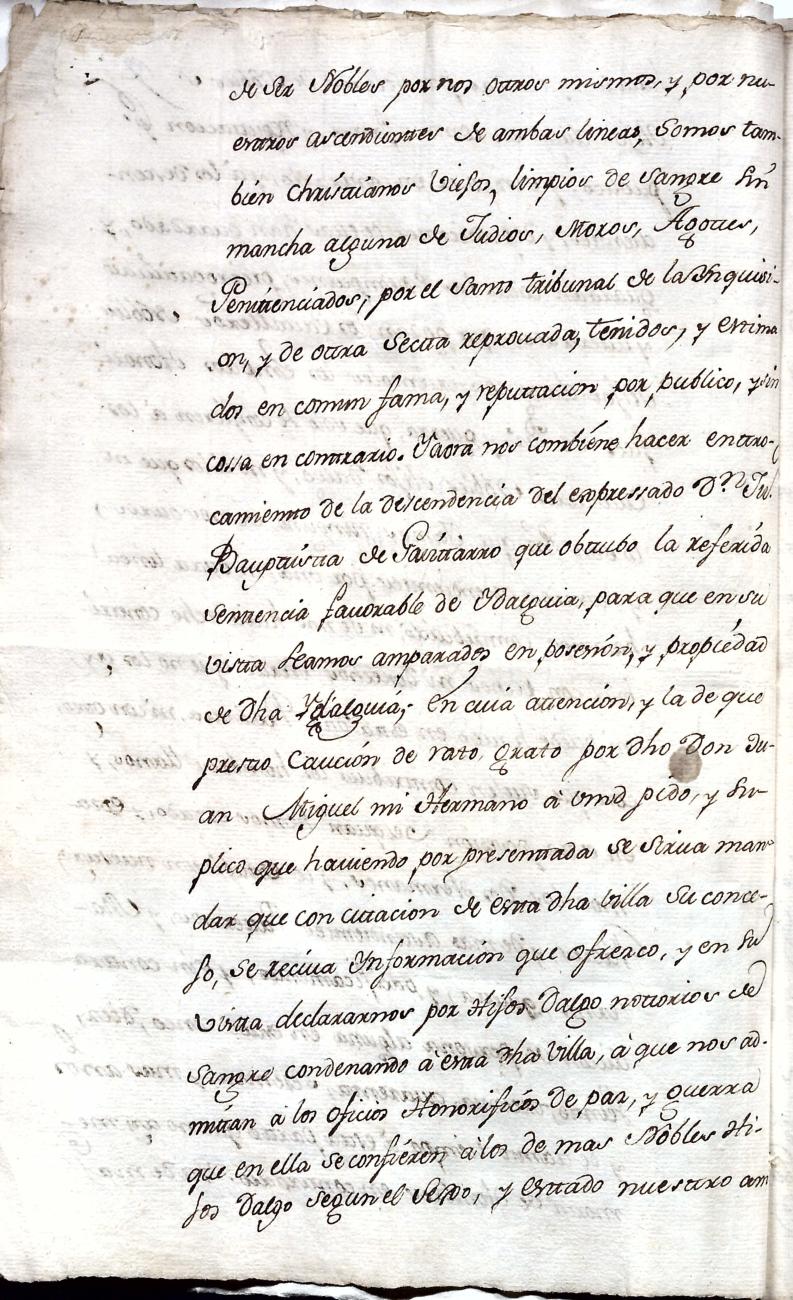 de ser Nobles por nos ottros mismos, y por nu-
esttros ascendienttes de ambas lineas, Somos tam-
bién Christianos Viejos, limpios de sangre sin
mancha alguna de Judios, Moros, Agottes,
Penittenciados, por el Santo tribunal de la Ynquisi-
on, y de ottra Sectta reprovada, tenidos, y estima
dos en comun fama, y reputtacion por publico, y sin
cossa en conttrario. Y aora nos combiéne hacer enttro-
camientto de la descendencia del expressado Dn Ju.
Bauptistta de Gavittarro que obtubo la referida
Senttencia favorable de Ydalguia, para que en su
vistta seamos amparados en posesión, y propiédad
de dha Ydalguiá; En cuia attención, y la de que
presto Caución de rato grato por dho Don Ju-
an Miguel mi Hermano à vmd pido, y su-
plico que haviendo por presenttada se sirva man-
dar que con cittacion de estta dha villa su conce-
jo, se reciva Ynformación que ofrezco, y en su
vistta declararnos por Hijos Dalgo nottorios de
Sangre condenando à estta dha Villa, à que nos ad-
mittan à los oficios Honorificós de paz, y guerra
que en ella se confiéren à los de mas Nobles Hi-
jos Dalgo segun el y esttado nuesttro am